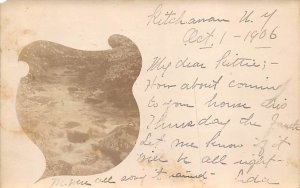 Kitchawan N. Y
Oct 1 - 1906
My dear
How about coming
to your house this
Thursday the
Let me know if it
will be all right -
all